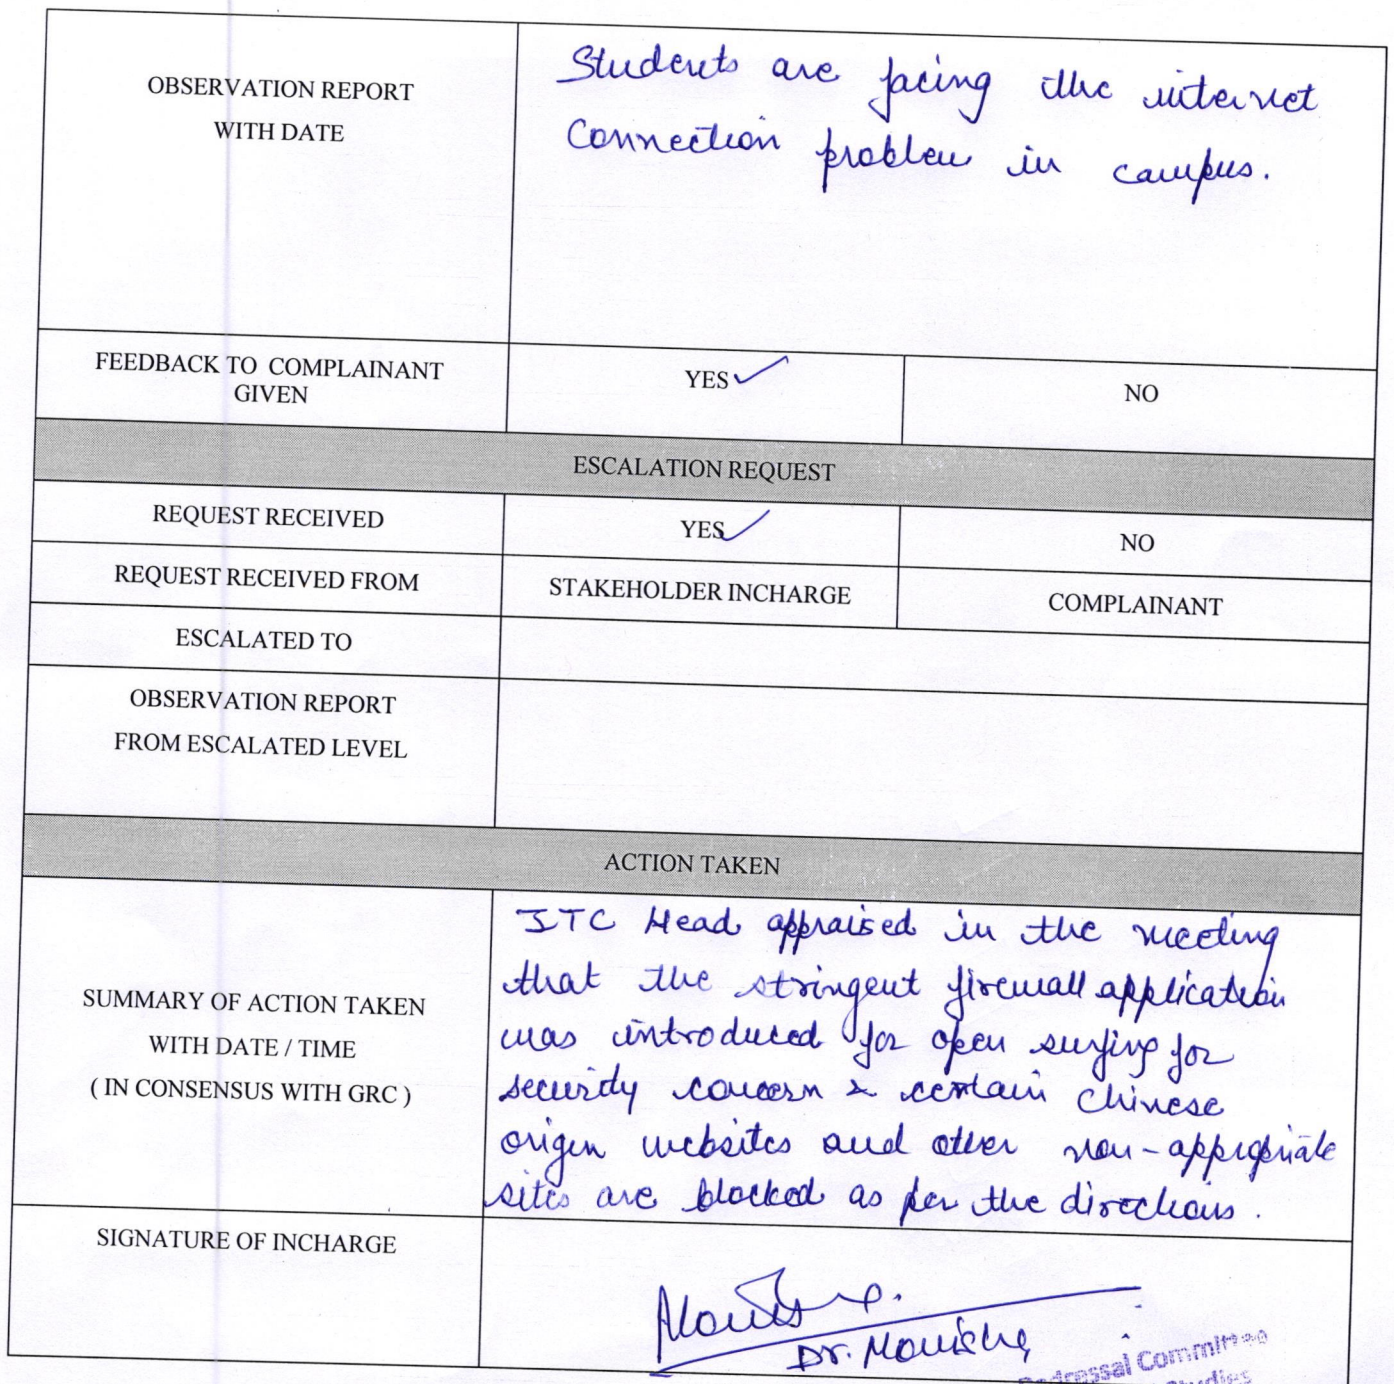 OBSERVATION REPORT
WITH DATE
Students are facing the internet
Connection problem in campus.
FEEDBACK TO COMPLAINANT
GIVEN
YES ✓
NO
ESCALATION REQUEST
REQUEST RECEIVED
YES ✓
NO
REQUEST RECEIVED FROM
STAKEHOLDER INCHARGE
COMPLAINANT
ESCALATED TO
OBSERVATION REPORT
FROM ESCALATED LEVEL
ACTION TAKEN
SUMMARY OF ACTION TAKEN
WITH DATE / TIME
( IN CONSENSUS WITH GRC )
ITC Head appraised in the meeting
that the stringent firewall application
was introduced for open surfing for
security concern & certain Chinese
origin websites and other non-appropriate
sites are blocked as per the directions.
SIGNATURE OF INCHARGE
Dr. Manisha
Committee